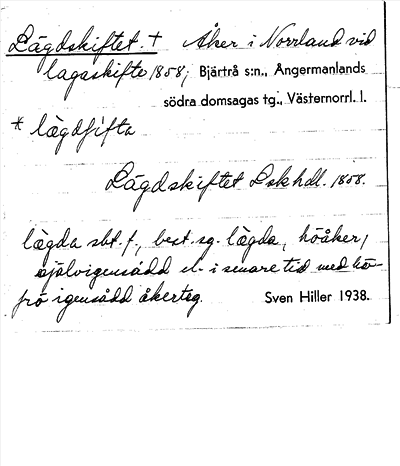 Lägdskiftet. † Åker i Norrland vid
lagaskifte 1858; Bjärtrå s:n., Ångermanlands
södra domsagas tg., Västernorrl. l.
* lægdſifta
Lägdskiftet Lskhdl. 1858.
lægda sbt. f., best. sg. lægda, höåker,
självigensådd el. i senare tid med hö-
frö igensådd åkerteg. Sven Hiller 1938.